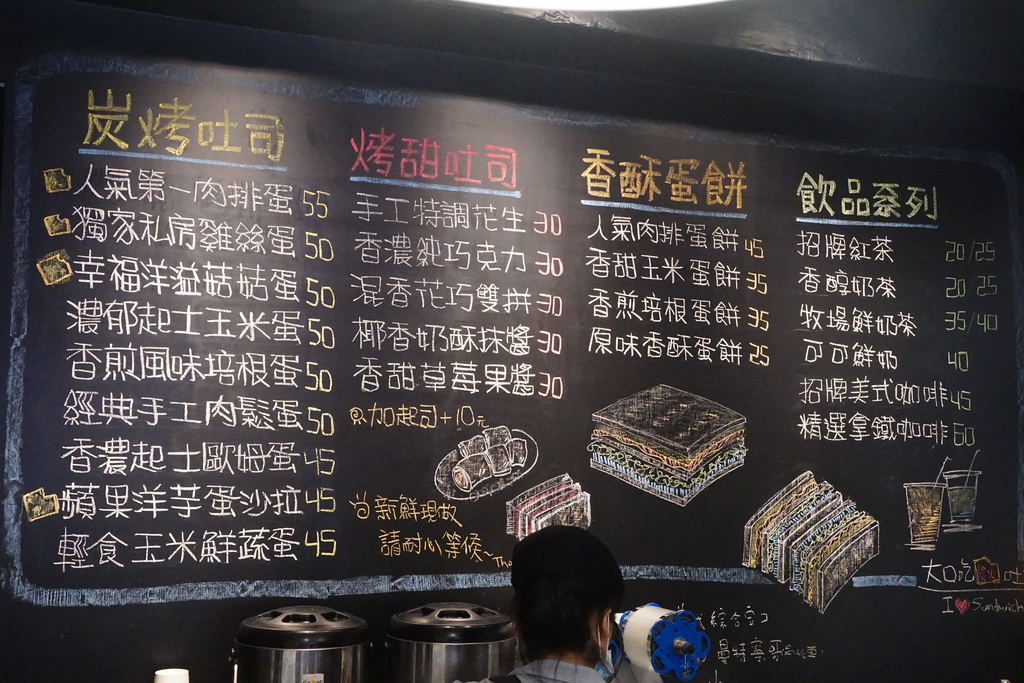 炭烤吐司
人氣第一肉排蛋 55
獨家私房雞絲蛋 50
幸福洋溢菇菇蛋 50
濃郁起士玉米蛋 50
香煎風味培根蛋 50
經典手工肉鬆蛋 50
香濃起士歐姆蛋 45
蘋果洋芋蛋沙拉 45
輕食玉米鮮蔬蛋 45
烤甜吐司
手工特調花生 30
香濃純巧克力 30
混香花巧雙拼 30
椰香奶酥抹醬 30
香甜草莓果醬 30
加起司+10元
新鮮現做
請耐心等候~
香酥蛋餅
人氣肉排蛋餅 45
香甜玉米蛋餅 35
香煎培根蛋餅 35
原味香酥蛋餅 25
飲品系列
招牌紅茶 20/25
香醇奶茶 20 25
牧場鮮奶茶 35/40
可可鮮奶 40
招牌美式咖啡 45
精選拿鐵咖啡 60
大口吃
吐
I ❤ Sandwich
綜合
曼特寧